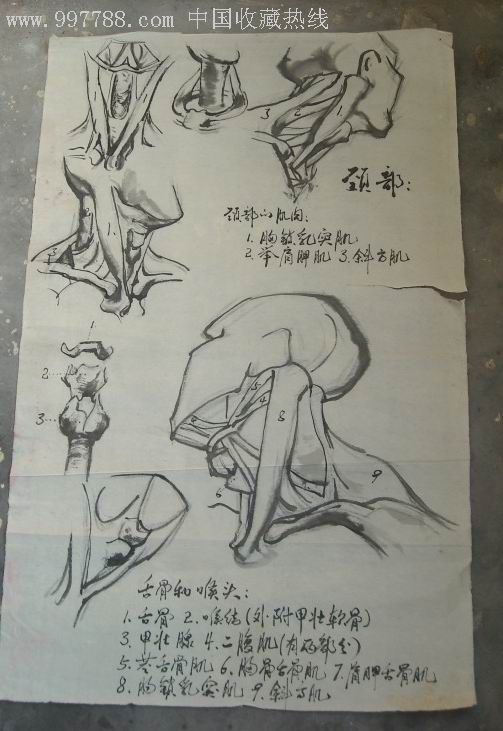 www.997788.com 中国收藏热线
颈部:
颈部的肌肉:
1. 胸锁乳突肌
2. 举肩胛肌 3. 斜方肌
3 2 1
1
2
3
5
4
8
6
9
舌骨和喉头:
1. 舌骨 2. 喉结(外附甲壮软骨)
3. 甲壮腺 4. 二腹肌(有两部分)
5. 茎舌骨肌 6. 胸骨舌骨肌 7. 肩胛舌骨肌
8. 胸锁乳突肌 9. 斜方肌